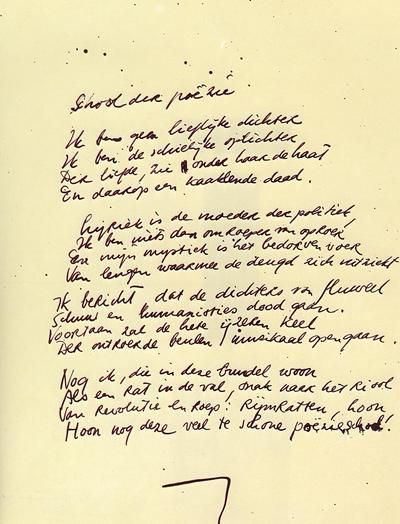 School der poëzie
Ik ben geen lieflijke dichter
Ik ben de schielijke oplichter
Der liefde, zie onder haar de haat
En daarop een kaaklende daad.
Lyriek is de moeder der politiek,
Ik ben niets dan omroeper van oproer
En mijn mystiek is het bedorven voer
Van leugen waarmee de deugd zich uitziekt
Ik bericht dat de dichters van fluweel
Schuw en humanisties dood gaan.
Voortaan zal de hete ijzeren keel
Der ontroerde beulen muzikaal opengaan.
Nog ik, die in deze bundel woon
Als een rat in de val, snak naar het riool
Van revolutie en roep: Rijmratten, hoon,
Hoon nog deze veel te schone poëzieschool!